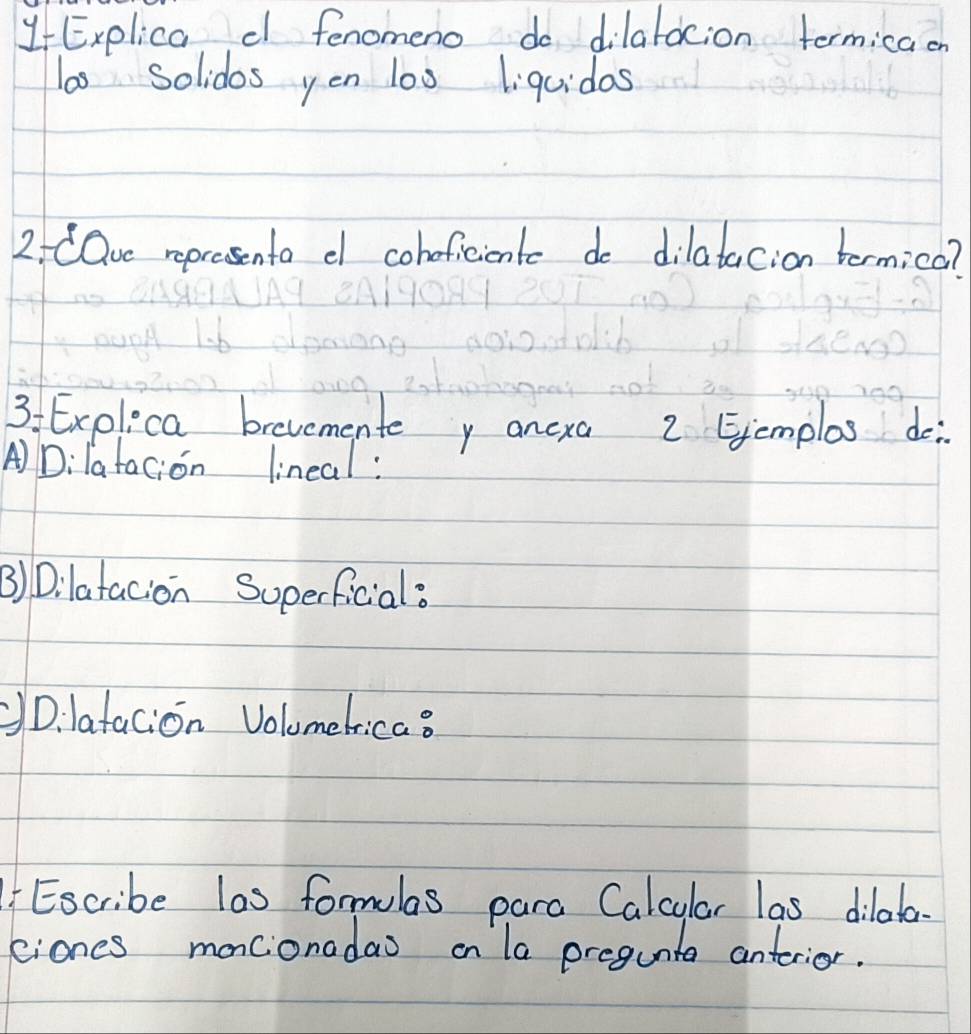 1.- Explica el fenomeno de dilatacion termica en
los Solidos y en los liquidos
2.- ¿Que representa el coheficiente de dilatacion termica?
3.- Explica brevemente y anexa 2 Ejemplos de:
A) Dilatación lineal:
B) Dilatación Superficial:
C) Dilatación Volumetrica:
Escribe las formulas para Calcular las dilata-
ciones mencionadas en la pregunta anterior.